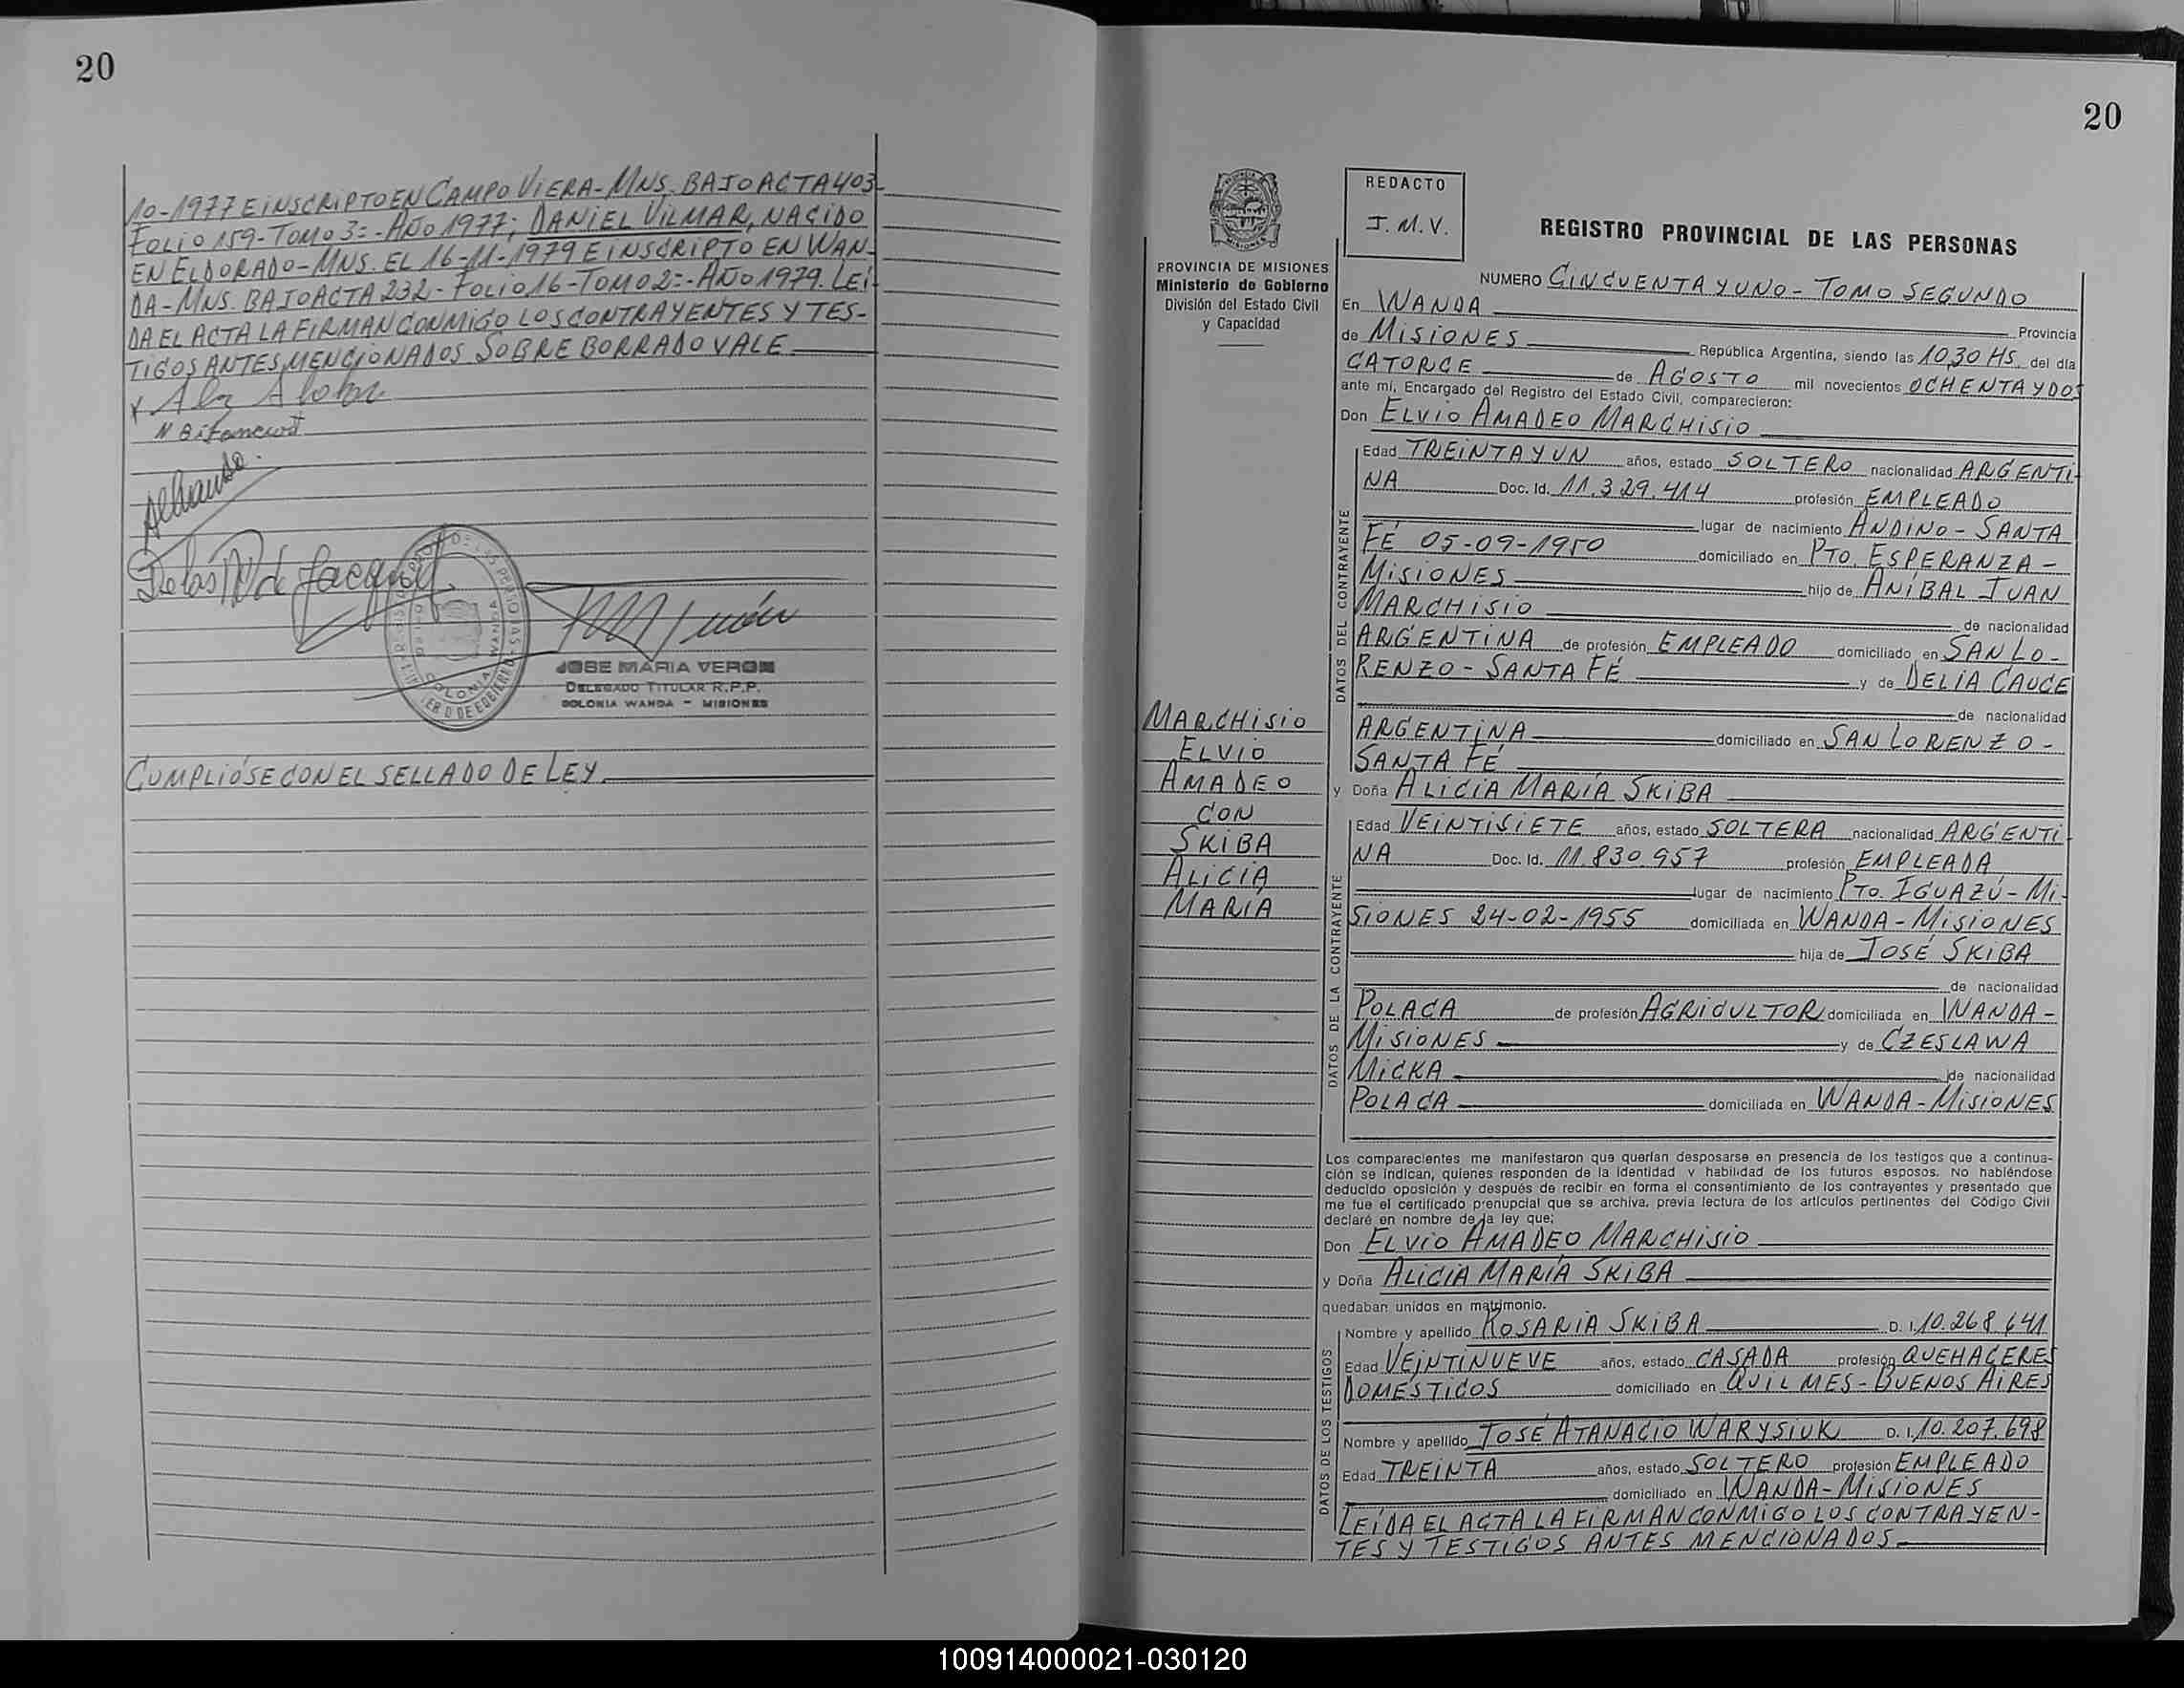 20
10-1977 E INSCRIPTO EN CAMPO VIERA-MNS. BAJO ACTA 403-
FOLIO 159-TOMO 3=-AÑO 1977; DANIEL VILMAR, NACIDO
EN ELDORADO-MNS. EL 16-11-1979 E INSCRIPTO EN WAN-
DA-MNS. BAJO ACTA 232-FOLIO 16-TOMO 2=-AÑO 1979. LEI-
DA EL ACTA LA FIRMAN CONMIGO LOS CONTRAYENTES Y TES-
TIGOS ANTES MENCIONADOS SOBRE BORRADO VALE
JOSE MARIA VERON
DELEGADO TITULAR R.P.P.
COLONIA WANDA - MISIONES
CUMPLIÓSE CON EL SELLADO DE LEY.
20
PROVINCIA DE MISIONES
Ministerio de Gobierno
División del Estado Civil
y Capacidad
REDACTO
J. M. V.
REGISTRO PROVINCIAL DE LAS PERSONAS
NUMERO CINCUENTA Y UNO - TOMO SEGUNDO
En WANDA Provincia
de MISIONES República Argentina, siendo las 10,30 HS. del día
CATORCE de AGOSTO mil novecientos OCHENTA Y DOS
ante mí, Encargado del Registro del Estado Civil, comparecieron:
Don ELVIO AMADEO MARCHISIO
DATOS DEL CONTRAYENTE
Edad TREINTA Y UN años, estado SOLTERO nacionalidad ARGENTI-
NA Doc. Id. 11.329.414 profesión EMPLEADO
lugar de nacimiento ANDINO - SANTA
FÉ 05-09-1950 domiciliado en PTO. ESPERANZA -
MISIONES hijo de ANÍBAL JUAN
MARCHISIO de nacionalidad
ARGENTINA de profesión EMPLEADO domiciliado en SAN LO-
RENZO - SANTA FÉ y de DELIA CAUCE
de nacionalidad
ARGENTINA domiciliado en SAN LORENZO -
SANTA FÉ
MARCHISIO
ELVIO
AMADEO
CON
SKIBA
ALICIA
MARÍA
y Doña ALICIA MARÍA SKIBA
DATOS DE LA CONTRAYENTE
Edad VEINTISIETE años, estado SOLTERA nacionalidad ARGENTI-
NA Doc. Id. 11.830.957 profesión EMPLEADA
lugar de nacimiento PTO. IGUAZÚ - MI-
SIONES 24-02-1955 domiciliada en WANDA - MISIONES
hija de JOSÉ SKIBA
de nacionalidad
POLACA de profesión AGRICULTOR domiciliada en WANDA -
MISIONES y de CZESLAWA
MICKA de nacionalidad
POLACA domiciliada en WANDA - MISIONES
Los comparecientes me manifestaron que querían desposarse en presencia de los testigos que a continua-
ción se indican, quienes responden de la identidad y habilidad de los futuros esposos. No habiéndose
deducido oposición y después de recibir en forma el consentimiento de los contrayentes y presentado que
me fue el certificado prenupcial que se archiva, previa lectura de los artículos pertinentes del Código Civil
declaré en nombre de la ley que:
Don ELVIO AMADEO MARCHISIO
y Doña ALICIA MARÍA SKIBA
quedaban unidos en matrimonio.
DATOS DE LOS TESTIGOS
Nombre y apellido ROSARIA SKIBA D. I. 10.268.641
Edad VEINTINUEVE años, estado CASADA profesión QUEHACERES
DOMÉSTICOS domiciliado en QUILMES - BUENOS AIRES
Nombre y apellido JOSÉ ATANACIO WARYSIUK D. I. 10.207.698
Edad TREINTA años, estado SOLTERO profesión EMPLEADO
domiciliado en WANDA - MISIONES
LEÍDA EL ACTA LA FIRMAN CONMIGO LOS CONTRAYEN-
TES Y TESTIGOS ANTES MENCIONADOS.
100914000021-030120